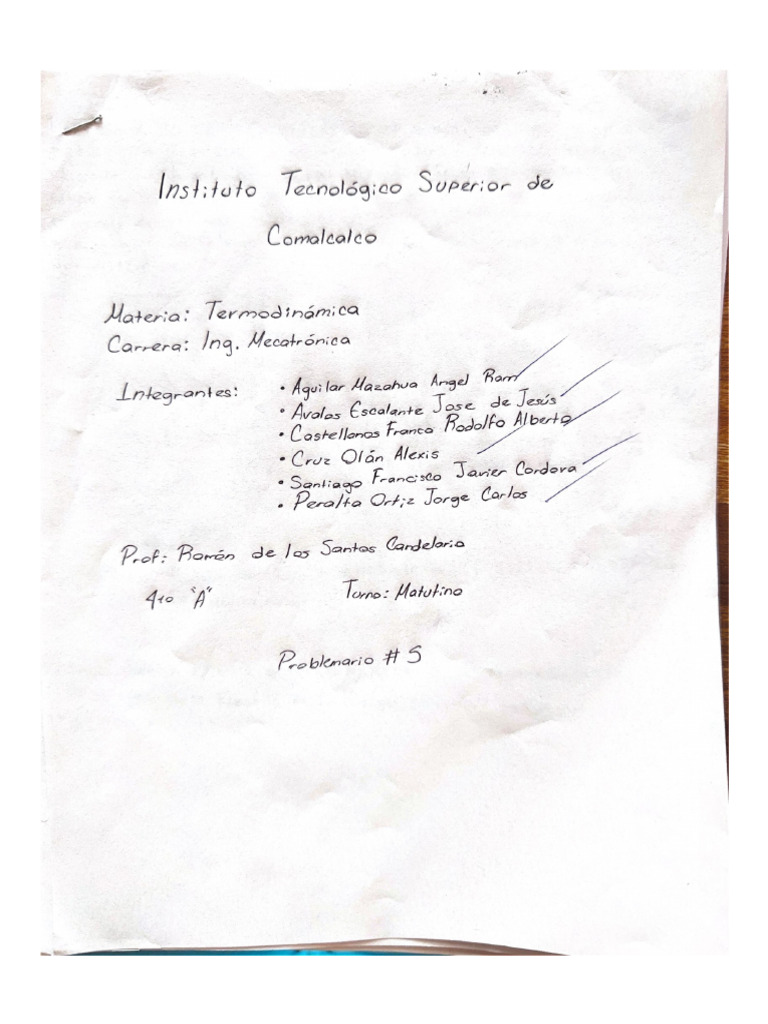 Instituto Tecnológico Superior de
Comalcalco
Materia: Termodinámica
Carrera: Ing. Mecatrónica
Integrantes:
• Aguilar Mazahua Angel Ram
• Avalos Escalante Jose de Jesús
• Castellanos Franco Rodolfo Alberto
• Cruz Olán Alexis
• Santiago Francisco Javier Cordova
• Peralta Ortiz Jorge Carlos
Prof: Román de los Santos Candelario
4to "A" Turno: Matutino
Problemario # 5